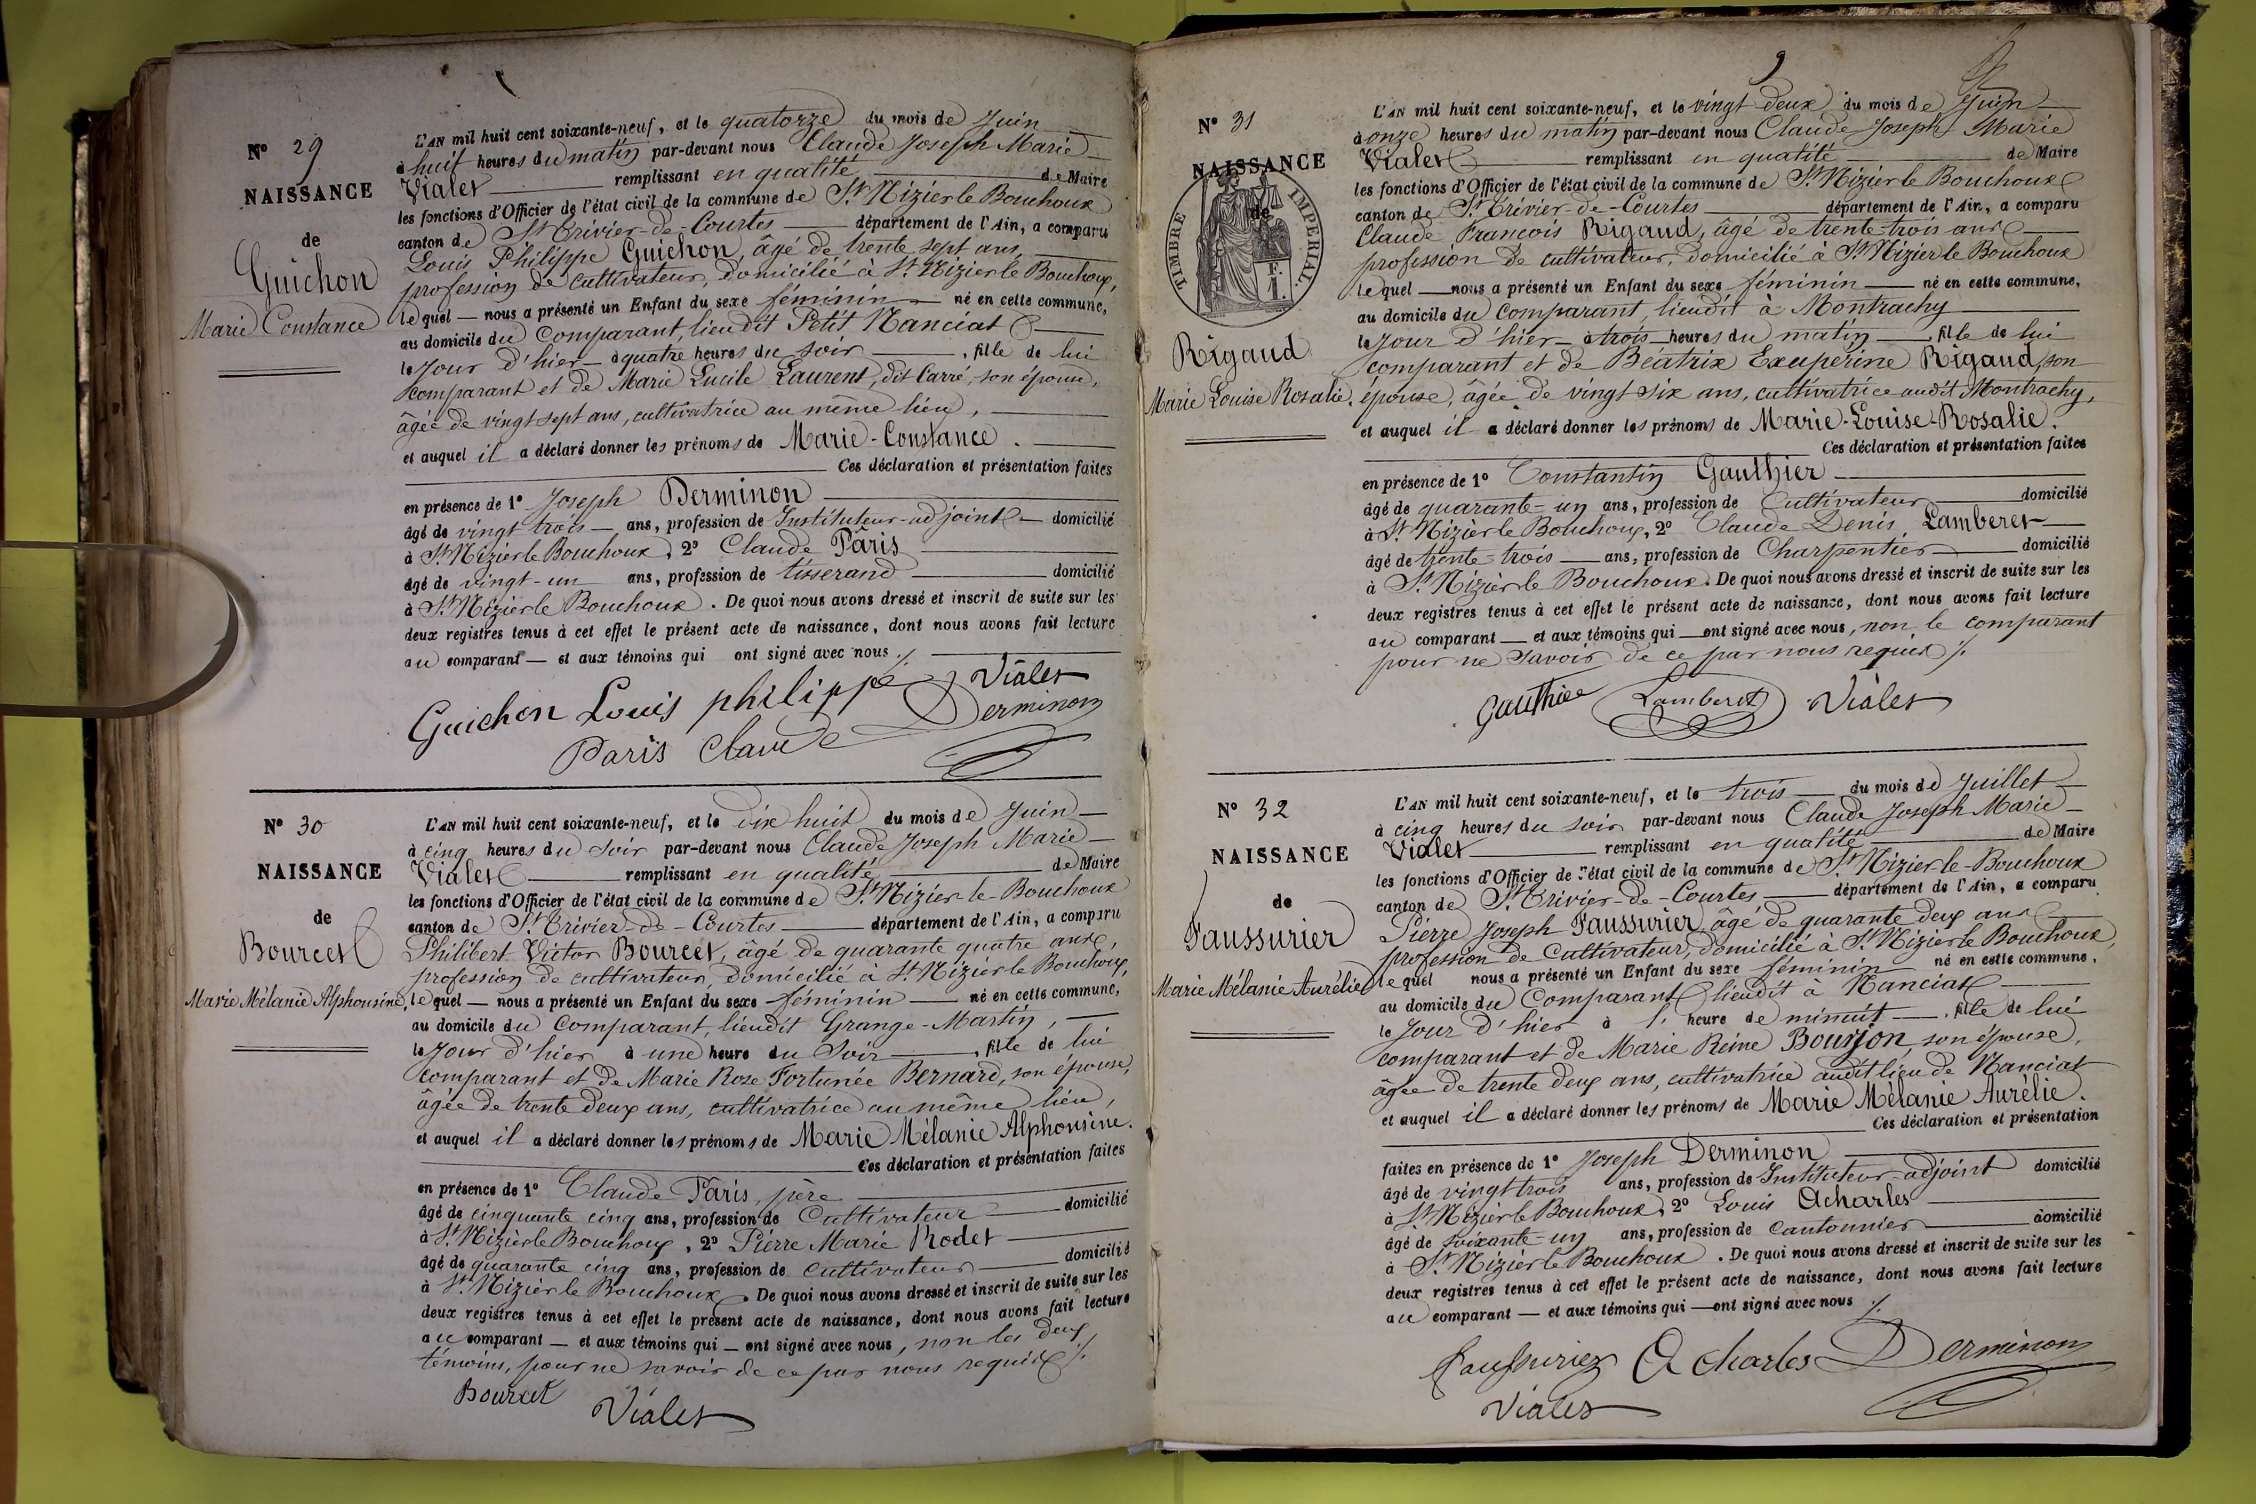 N° 29
NAISSANCE
de
Guichon
Marie Constance
L'AN mil huit cent soixante-neuf, et le quatorze du mois de Juin
à huit heures du matin par-devant nous Claude Joseph Marie
Vialet remplissant en qualité de Maire
les fonctions d'Officier de l'état civil de la commune de St Nizier le Bouchoux
canton de St Trivier-de-Courtes département de l'Ain, a comparu
Louis Philippe Guichon, âgé de trente sept ans,
profession de cultivateur, domicilié à St Nizier le Bouchoux,
lequel nous a présenté un Enfant du sexe féminin né en cette commune,
au domicile du comparant, lieudit Petit Nanciat
le Jour d'hier à quatre heures du soir, fille de lui
comparant et de Marie Lucile Laurent, dit Carré, son épouse,
âgée de vingt sept ans, cultivatrice au même lieu,
et auquel il a déclaré donner les prénoms de Marie-Constance.
Ces déclaration et présentation faites
en présence de 1° Joseph Derminon
âgé de vingt trois ans, profession de Instituteur-adjoint domicilié
à St Nizier le Bouchoux, 2° Claude Pâris
âgé de vingt-un ans, profession de tisserand domicilié
à St Nizier le Bouchoux. De quoi nous avons dressé et inscrit de suite sur les
deux registres tenus à cet effet le présent acte de naissance, dont nous avons fait lecture
au comparant et aux témoins qui ont signé avec nous ./.
Guichon Louis philippe Vialet
Paris Claude Derminon
N° 30
NAISSANCE
de
Bourcet
Marie Mélanie Alphonsine.
L'AN mil huit cent soixante-neuf, et le dix huit du mois de Juin
à cinq heures du soir par-devant nous Claude Joseph Marie
Vialet remplissant en qualité de Maire
les fonctions d'Officier de l'état civil de la commune de St Nizier-le-Bouchoux
canton de St Trivier-de-Courtes département de l'Ain, a comparu
Philibert Victor Bourcet, âgé de quarante quatre ans,
profession de cultivateur, domicilié à St Nizier le Bouchoux,
lequel nous a présenté un Enfant du sexe féminin né en cette commune,
au domicile du comparant, lieudit Grange-Martin,
le Jour d'hier à une heure du soir, fille de lui
comparant et de Marie Rose Fortunée Bernard, son épouse,
âgée de trente deux ans, cultivatrice au même lieu,
et auquel il a déclaré donner les prénoms de Marie Mélanie Alphonsine.
Ces déclaration et présentation faites
en présence de 1° Claude Pâris, père
âgé de cinquante cinq ans, profession de Cultivateur domicilié
à St Nizier le Bouchoux, 2° Pierre Marie Rodet
âgé de quarante cinq ans, profession de cultivateur domicilié
à St Nizier le Bouchoux. De quoi nous avons dressé et inscrit de suite sur les
deux registres tenus à cet effet le présent acte de naissance, dont nous avons fait lecture
au comparant et aux témoins qui ont signé avec nous, non les deux
témoins, pour ne savoir de ce par nous requis ./.
Bourcet
Vialet
9
N° 31
NAISSANCE
de
TIMBRE IMPERIAL.
F.
1.
Rigaud
Marie Louise Rosalie.
L'AN mil huit cent soixante-neuf, et le vingt deux du mois de Juin
à onze heures du matin par-devant nous Claude Joseph Marie
Vialet remplissant en qualité de Maire
les fonctions d'Officier de l'état civil de la commune de St Nizier le Bouchoux
canton de St Trivier-de-Courtes département de l'Ain, a comparu
Claude François Rigaud, âgé de trente-trois ans
profession de cultivateur, domicilié à St Nizier le Bouchoux
lequel nous a présenté un Enfant du sexe féminin né en cette commune,
au domicile du comparant, lieudit à Montrachy
le Jour d'hier à trois heures du matin, fille de lui
comparant et de Béatrix Exupérine Rigaud, son
épouse, âgée de vingt six ans, cultivatrice audit Montrachy,
et auquel il a déclaré donner les prénoms de Marie-Louise-Rosalie.
Ces déclaration et présentation faites
en présence de 1° Constantin Gauthier
âgé de quarante-un ans, profession de Cultivateur domicilié
à St Nizier le Bouchoux, 2° Claude Denis Lamberet
âgé de trente-trois ans, profession de Charpentier domicilié
à St Nizier le Bouchoux. De quoi nous avons dressé et inscrit de suite sur les
deux registres tenus à cet effet le présent acte de naissance, dont nous avons fait lecture
au comparant et aux témoins qui ont signé avec nous, non le comparant
pour ne savoir de ce par nous requis ./.
Gauthier Lamberet Vialet
N° 32
NAISSANCE
de
Faussurier
Marie Mélanie Aurélie
L'AN mil huit cent soixante-neuf, et le trois du mois de Juillet
à cinq heures du soir par-devant nous Claude Joseph Marie
Vialet remplissant en qualité de Maire
les fonctions d'Officier de l'état civil de la commune de St Nizier-le-Bouchoux
canton de St Trivier-de-Courtes département de l'Ain, a comparu
Pierre Joseph Faussurier, âgé de quarante deux ans
profession de Cultivateur, domicilié à St Nizier le Bouchoux,
lequel nous a présenté un Enfant du sexe féminin né en cette commune,
au domicile du Comparant lieudit à Nanciat
le Jour d'hier à l' heure de minuit, fille de lui
comparant et de Marie Reine Bourjon, son épouse,
âgée de trente deux ans, cultivatrice audit lieu de Nanciat
et auquel il a déclaré donner les prénoms de Marie Mélanie Aurélie.
Ces déclaration et présentation
faites en présence de 1° Joseph Derminon
âgé de vingt trois ans, profession de Instituteur-adjoint domicilié
à St Nizier le Bouchoux, 2° Louis Acharles
âgé de soixante-un ans, profession de cantonnier domicilié
à St Nizier le Bouchoux. De quoi nous avons dressé et inscrit de suite sur les
deux registres tenus à cet effet le présent acte de naissance, dont nous avons fait lecture
au comparant et aux témoins qui ont signé avec nous ./.
Faussurier Acharles Derminon
Vialet